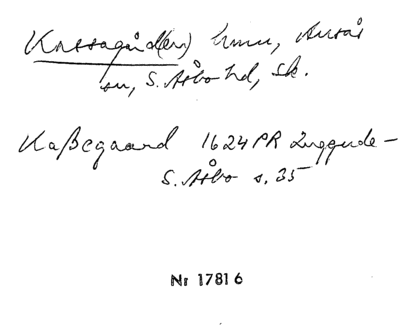 Kassagård(en) hmn, Ausås
sn, S. Åsbo hd, Sk.
Kaßegaard 1624 PR Luggude-
S. Åsbo s. 35
Nr 17816